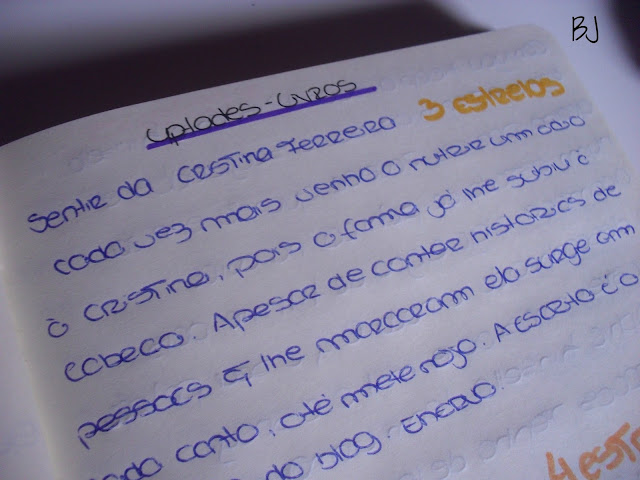 BJ
Uplodes-Livros
Sentir da Cristina Ferreira 3 estrelas
cada vez mais venho a nutrir um odio
à Cristina, pois a fama já lhe subiu à
cabeça. Apesar de contar historias de
pessoas q lhe marcaram ela surge em
cada canto, até mete nojo. A escrita é a
do blog. ENORJO!
4 estr